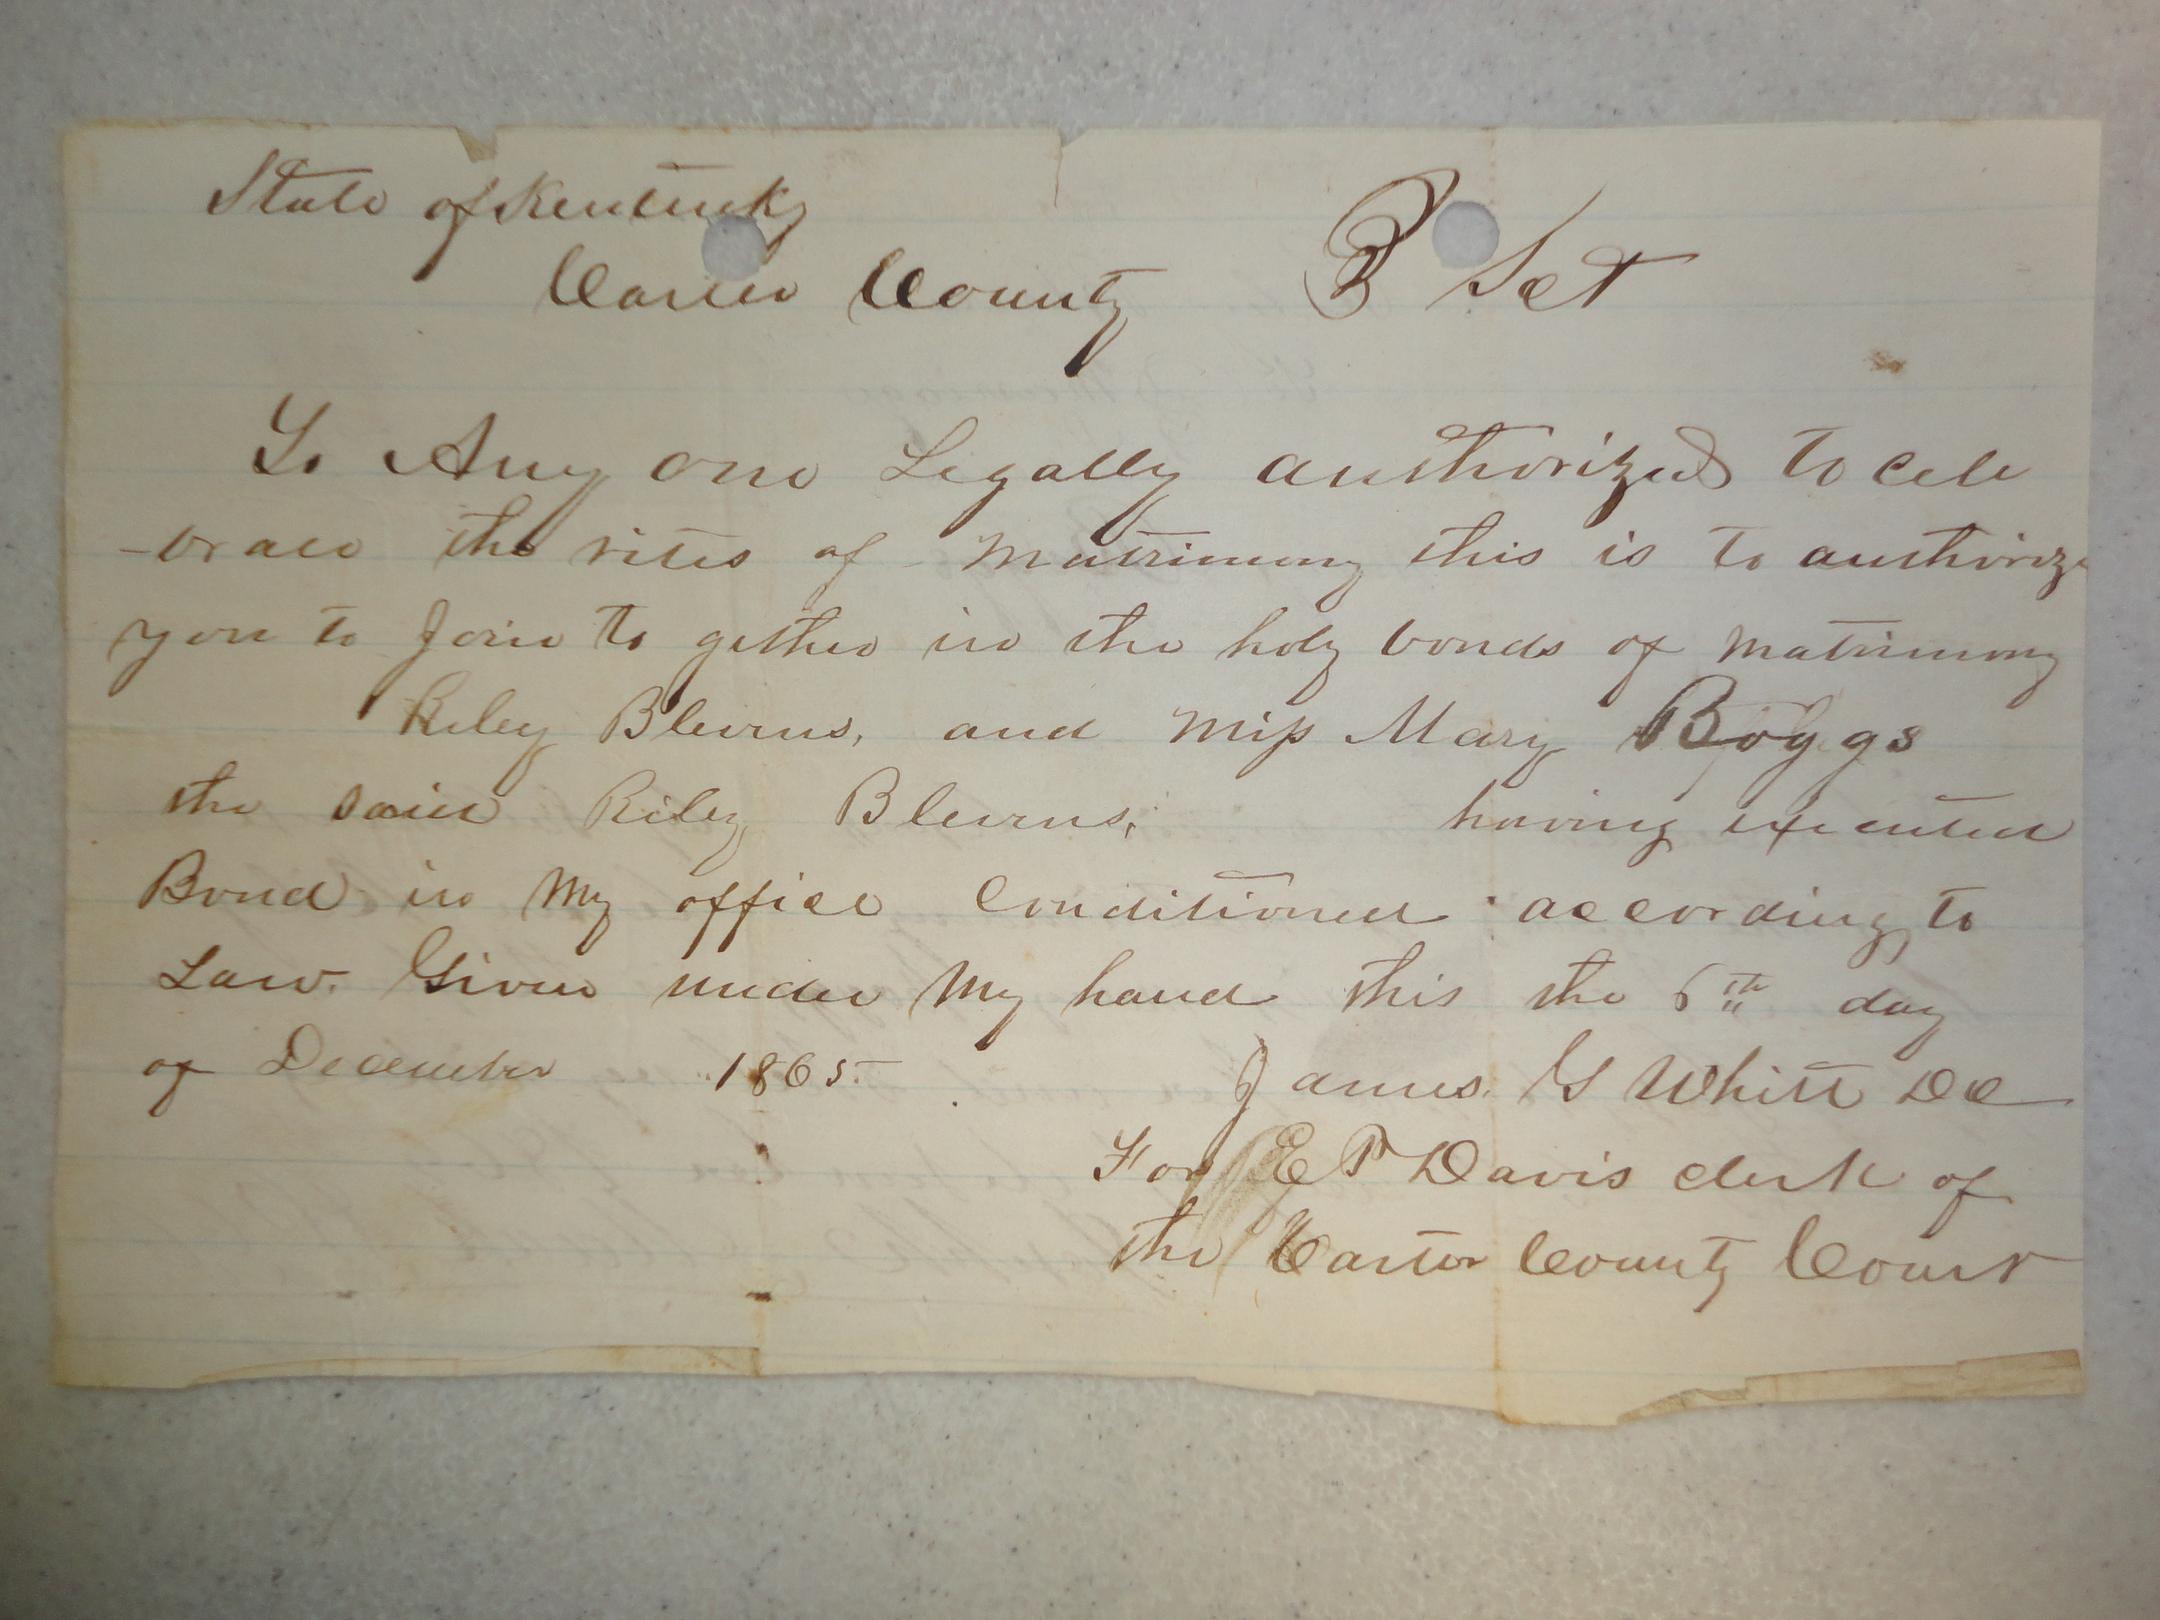 State of Kentucky
Carter County } Sct
To Any one Legally authorized to cele
-brate the rites of Matrimony this is to authorize
you to Join to gether in the holy bonds of Matrimony
Riley Blevins, and Miss Mary Boggs
the said Riley Blevins, having executed
Bond in My office Conditioned according to
Law. Given under My hand this the 6th day
of December 1865.
James. G Whitt DC
For E P Davis clerk of
the Carter County Court